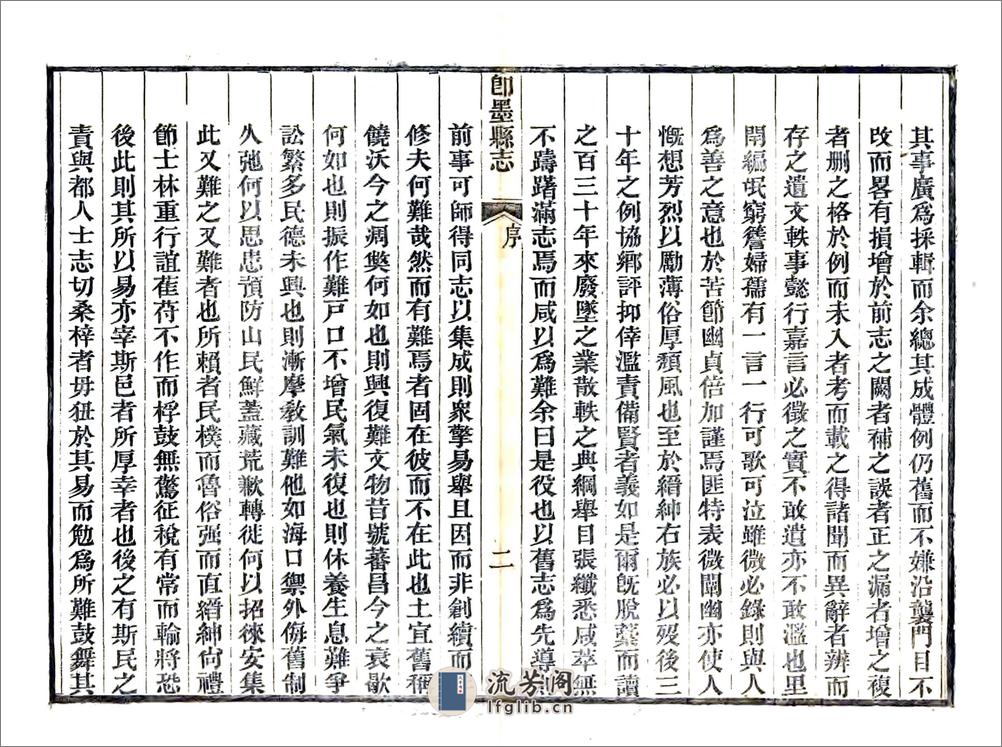 其事廣爲採輯而余總其成體例仍舊而不嫌沿襲門目不
改而畧有損增於前志之闕者補之誤者正之漏者增之複
者刪之格於例而未入者考而載之得諸聞而異辭者辨而
存之遺文軼事懿行嘉言必徵之實不敢遺亦不敢濫也里
閈編氓窮簷婦孺有一言一行可歌可泣雖微必錄則與人
爲善之意也於苦節幽貞倍加謹焉匪特表微闡幽亦使人
慨想芳烈以勵薄俗厚頹風也至於縉紳右族必以歿後三
十年之例協鄉評抑倖濫責備賢者義如是爾旣脫藳而讀
之百三十年來廢墜之業散軼之典綱舉目張纖悉咸萃無
不躊躇滿志焉而咸以爲難余曰是役也以舊志爲先導
卽墨縣志
序
二
前事可師得同志以集成則衆擎易舉且因而非創續而
修夫何難哉然而有難焉者固在彼而不在此也土宜舊稱
饒沃今之凋獘何如也則興復難文物昔號蕃昌今之衰歇
何如也則振作難戸口不增民氣未復也則休養生息難爭
訟繁多民德未興也則漸摩敎訓難他如海口禦外侮舊制
久弛何以思患預防山民鮮蓋藏荒歉轉徙何以招徠安集
此又難之又難者也所賴者民樸而魯俗强而直縉紳尙禮
節士林重行誼萑苻不作而桴鼓無驚征稅有常而輸將恐
後此則其所以易亦宰斯邑者所厚幸者也後之有斯民之
責與都人士志切桑梓者毋狃於其易而勉爲所難鼓舞其
流芳阁
lfglib.cn